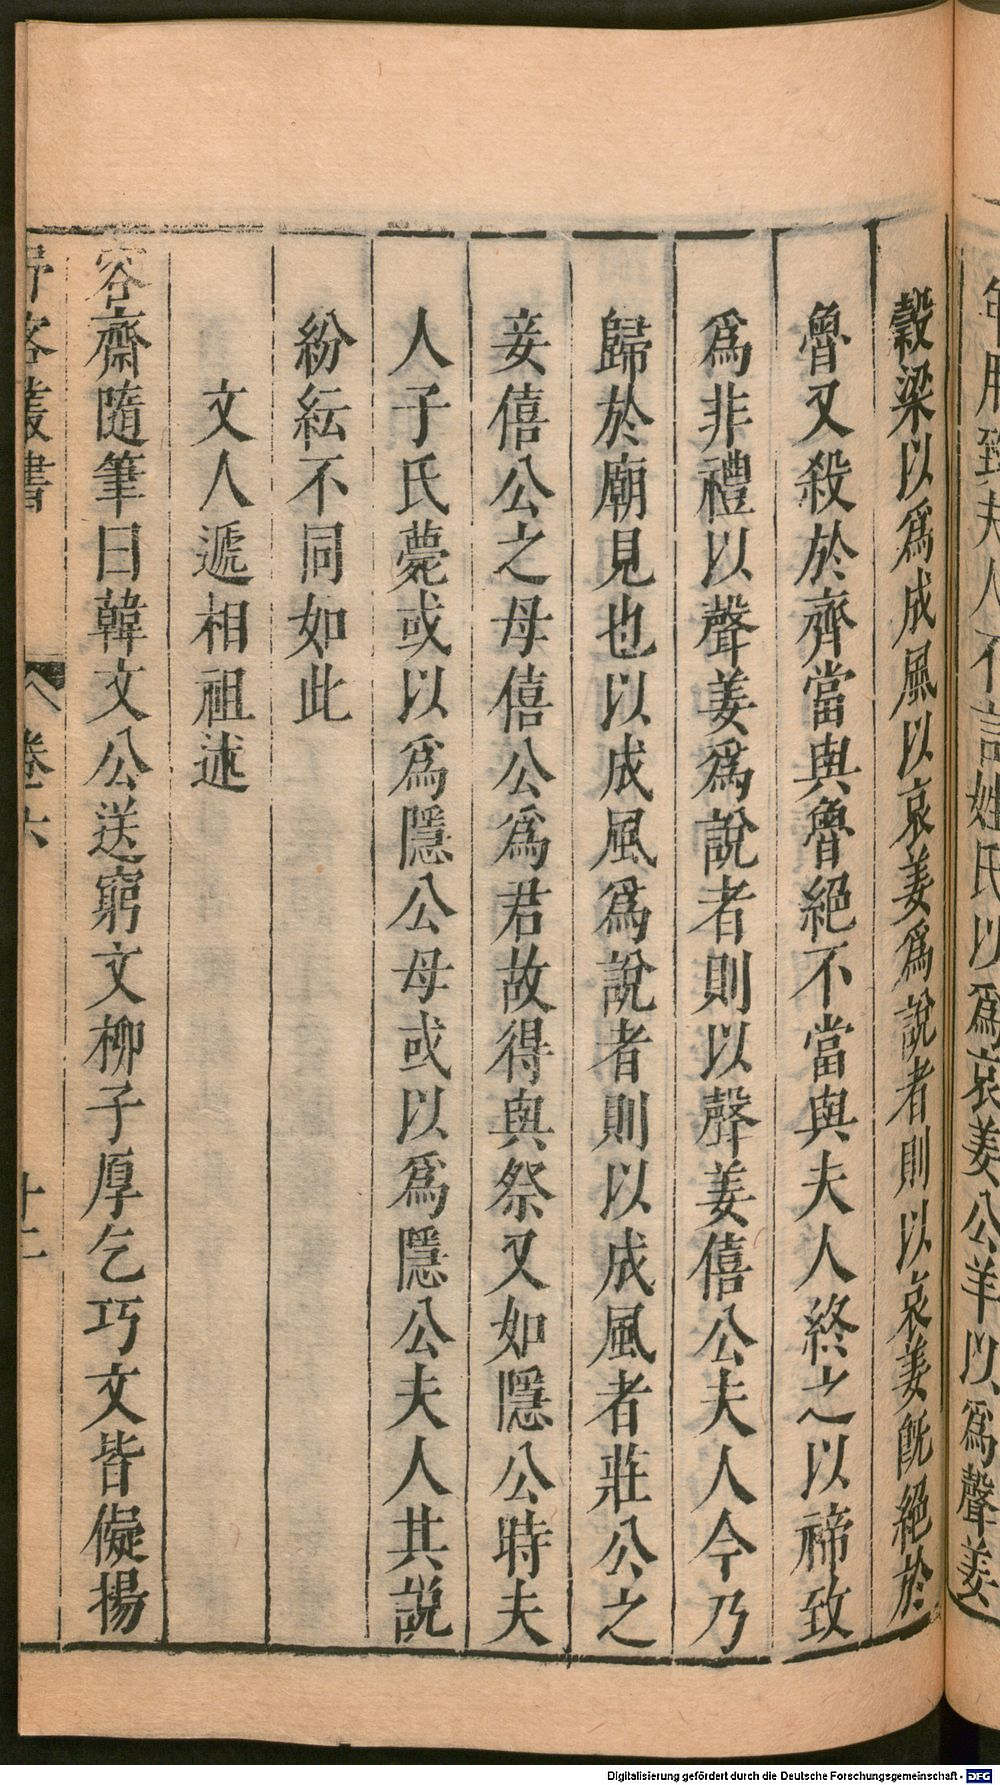 年用致夫人不言姓氏以爲哀姜公羊以爲聲姜
穀梁以爲成風以哀姜爲說者則以哀姜旣絕於
魯又殺於齊當與魯絕不當與夫人終之以禘致
爲非禮以聲姜爲說者則以聲姜僖公夫人今乃
歸於廟見也以成風爲說者則以成風者莊公之
妾僖公之母僖公爲君故得與祭又如隱公時夫
人子氏薨或以爲隱公母或以爲隱公夫人其說
紛紜不同如此
文人遞相祖述
容齋隨筆曰韓文公送窮文柳子厚乞巧文皆儗揚
野客叢書 卷六 十二
Digitalisierung gefördert durch die Deutsche Forschungsgemeinschaft - DFG